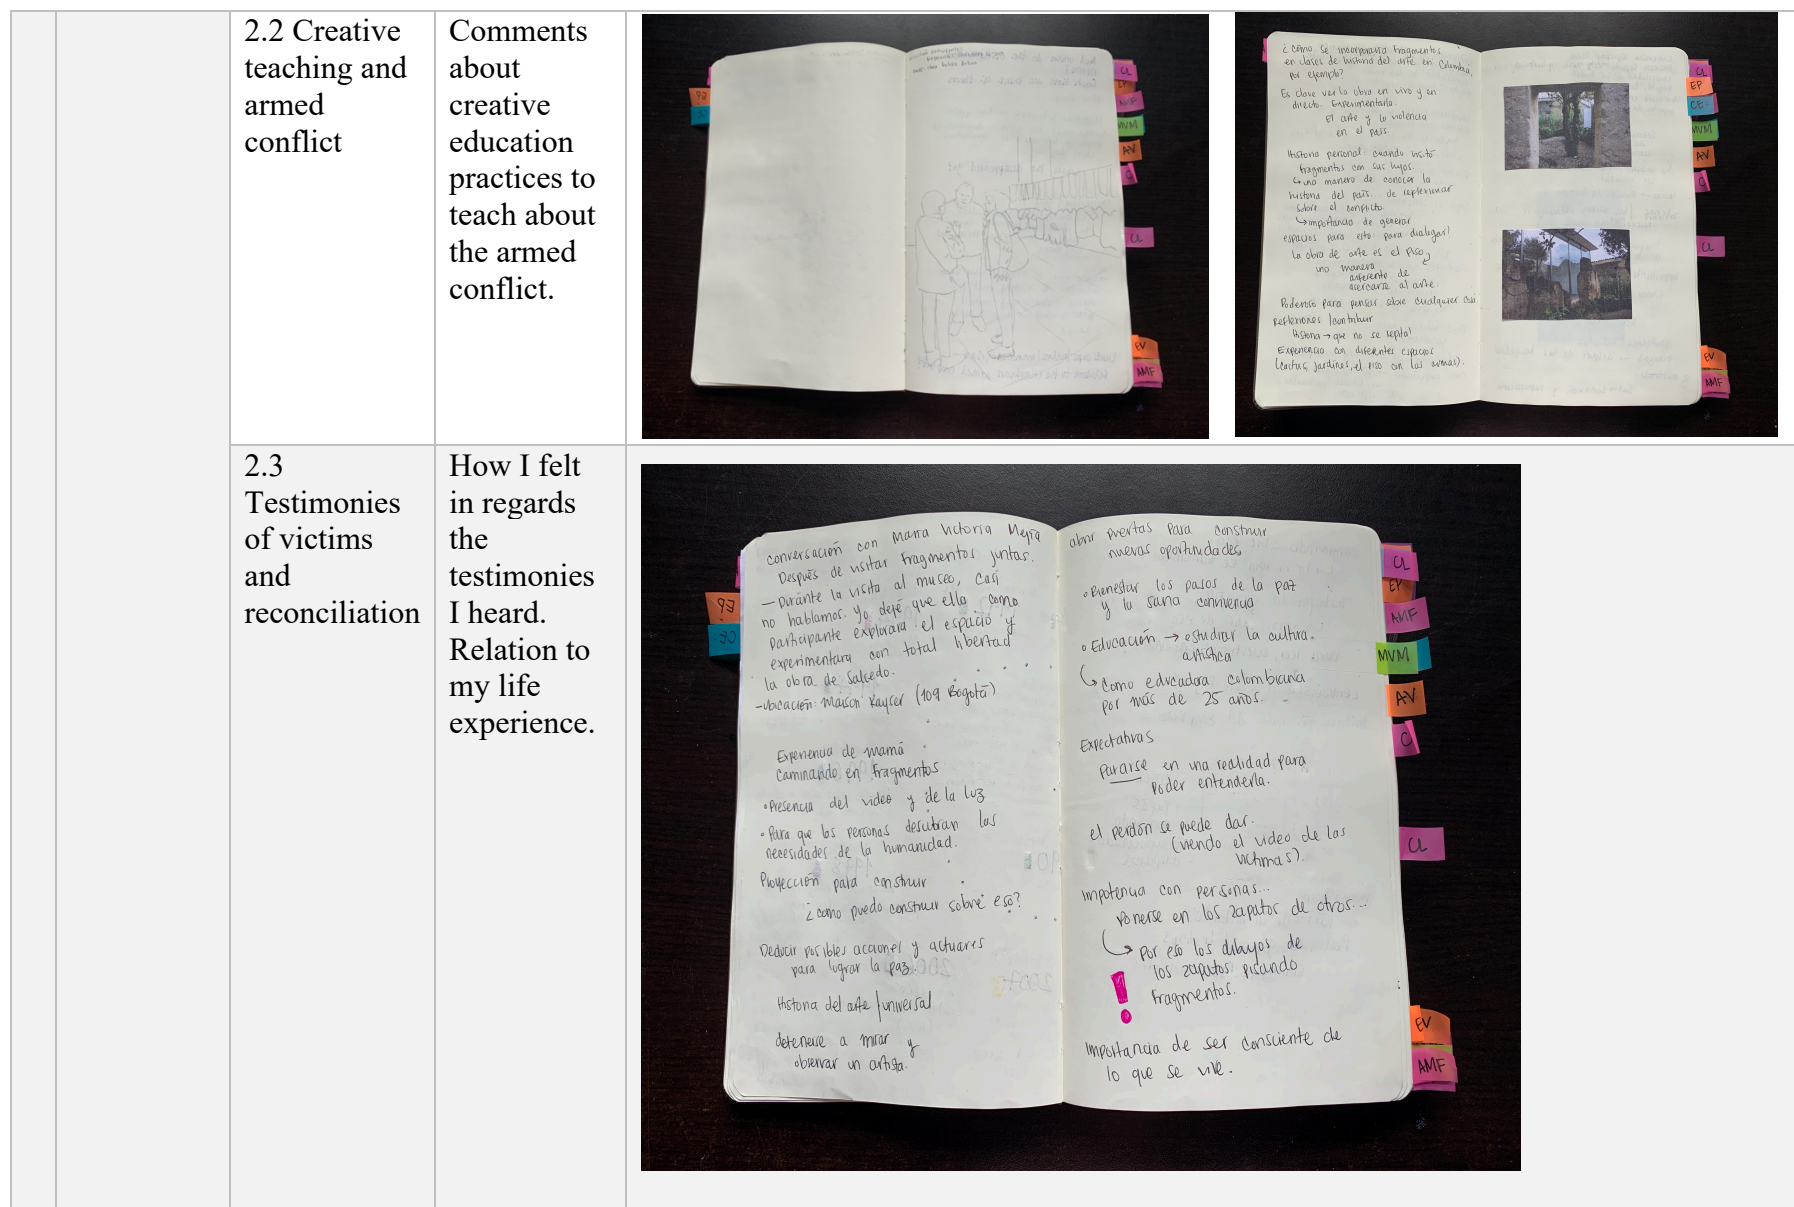 2.2 Creative
teaching and
armed
conflict
Comments
about
creative
education
practices to
teach about
the armed
conflict.
CL
EP
AMF
MVM
AV
C
CL
EV
AMF
¿cómo se incorporaría fragmentos
en clases de historia del arte en Colombia,
por ejemplo?
Es clave ver la obra en vivo y en
directo. Experimentarla.
El arte y la violencia
en el país.
Historia personal: cuando visitó
fragmentos con sus hijos.
↳ una manera de conocer la
historia del país. de reflexionar
sobre el conflicto.
↳ importancia de generar
espacios para esto: para dialogar!
la obra de arte es el piso,
una manera
diferente de
acercarse al arte.
Poderoso para pensar sobre cualquier cosa.
Reflexiones / contribuir
Historia → que no se repita!
Experiencia con diferentes espacios
(cactus, jardines, el piso con las armas).
CL
EP
CE
MVM
AV
C
CL
EV
AMF
2.3
Testimonies
of victims
and
reconciliation
How I felt
in regards
the
testimonies
I heard.
Relation to
my life
experience.
conversación con María Victoria Mejía
Después de visitar fragmentos juntas.
— Durante la visita al museo, casi
no hablamos. Yo dejé que ella como
participante explorara el espacio y
experimentara con total libertad
la obra de Salcedo.
- Ubicación: Maison Kayser (109 Bogotá)
Experiencia de mamá
caminando en fragmentos
• Presencia del video y de la luz
• Para que las personas descubran las
necesidades de la humanidad.
Proyección para construir
¿como puedo construir sobre eso?
Deducir posibles acciones y actuares
para lograr la paz.
Historia del arte / universal
detenerse a mirar y
observar un artista.
abrir puertas para construir
nuevas oportunidades
• Bienestar los pasos de la paz
y la sana convivencia
• Educación → estudiar la cultura.
artística
↳ Como educadora colombiana
por más de 25 años.
Expectativas
Pararse en una realidad para
poder entenderla.
el perdón se puede dar.
(viendo el video de las
víctimas).
Impotencia con personas...
ponerse en los zapatos de otros...
↳ Por eso los dibujos de
los zapatos pisando
fragmentos.
!
Importancia de ser consciente de
lo que se vive.
CL
EP
AMF
MVM
AV
C
CL
EV
AMF